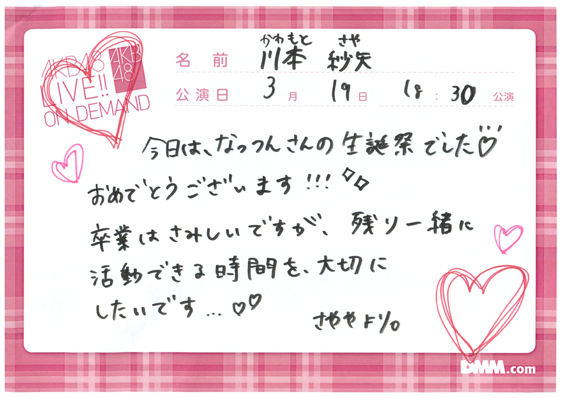 AKB48
LIVE!!
ON DEMAND
AKB
48
かわもと さや
名前 川本 紗矢
公演日 3月 19日 18:30 公演
今日は、なっつんさんの生誕祭でした♡
おめでとうございます!!!
卒業はさみしいですが、残り一緒に
活動できる時間を、大切に
したいです...♡♡
さややより。
DMM.com